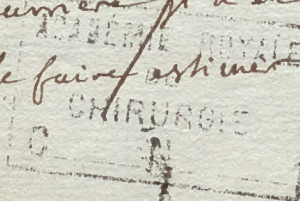 ACADÉMIE ROYALE
le faire estimer
DE
CHIRURGIE
C N